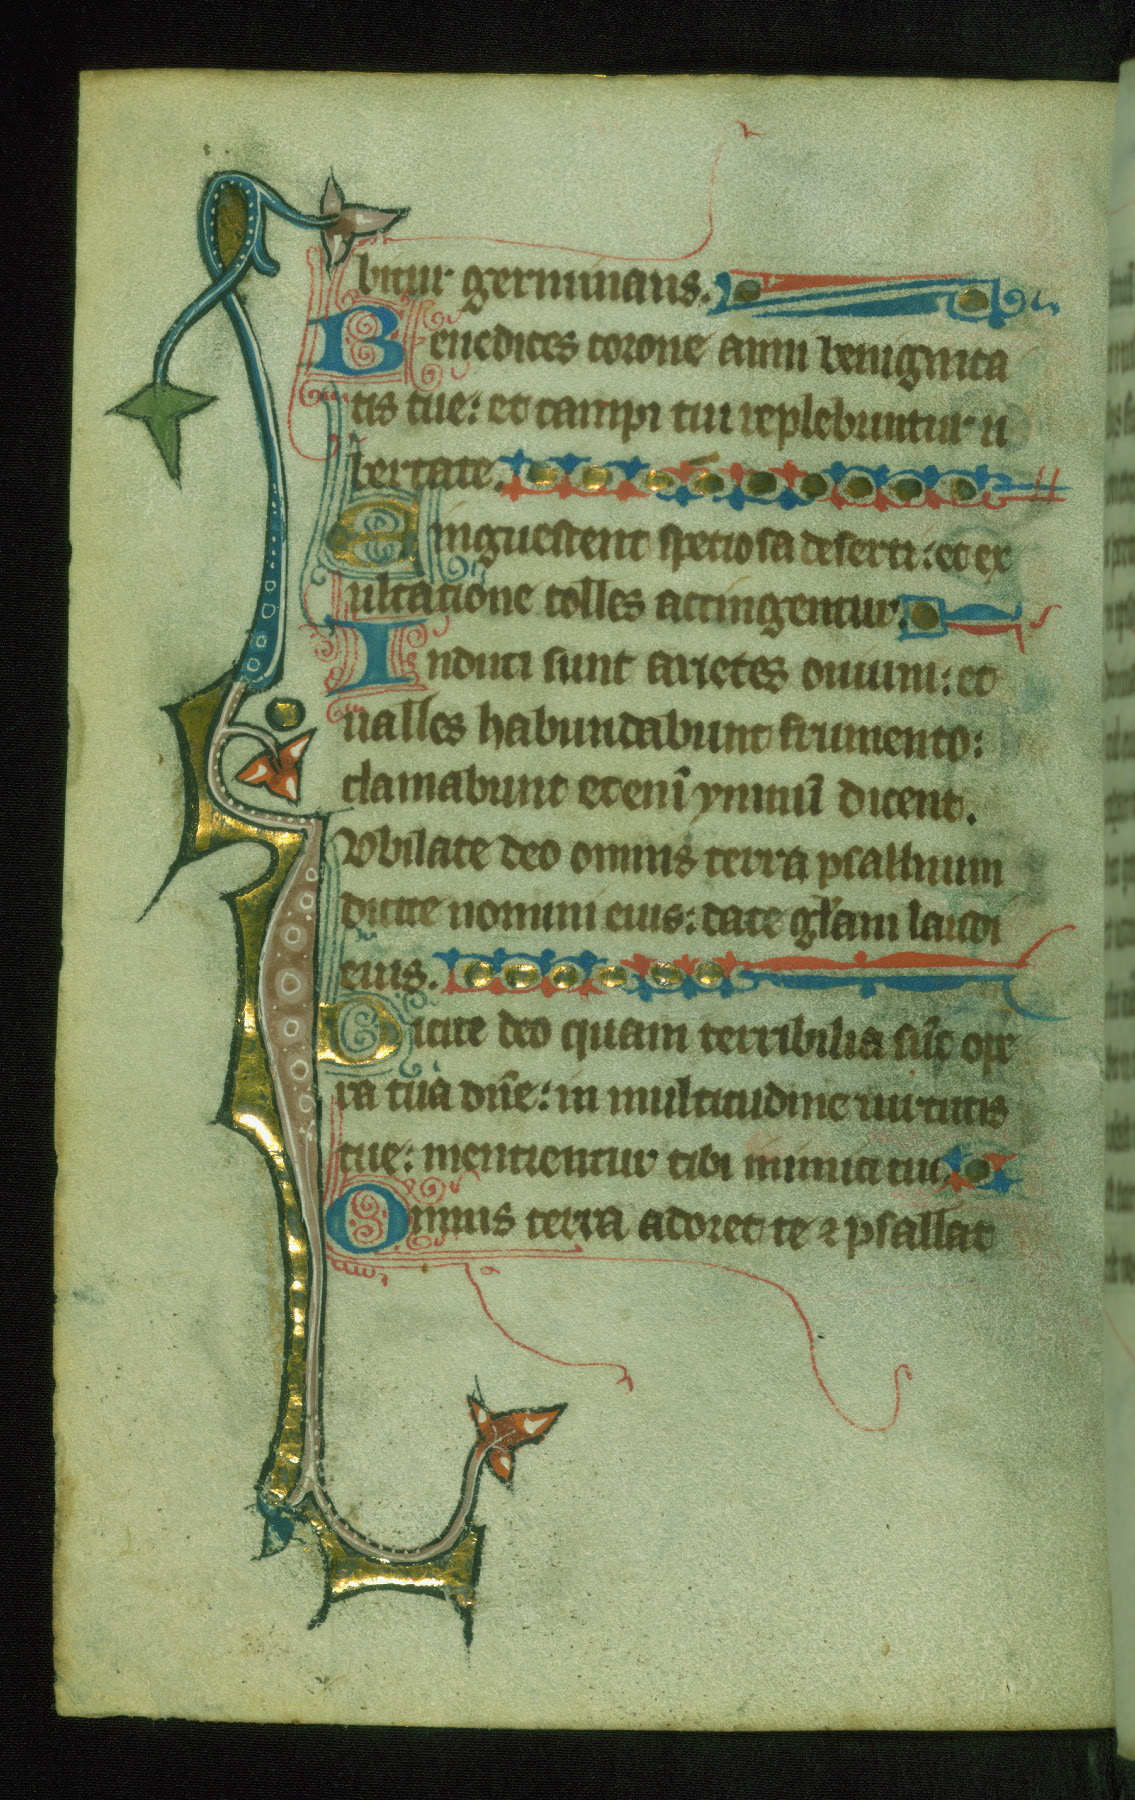 bitur germinans.
Benedices corone anni benignita
tis tue: et campi tui replebuntur u
bertate.
Pinguescent speciosa deserti: et ex
ultatione colles accingentur.
Induti sunt arietes ouium: et
ualles habundabunt frumento:
clamabunt etenī ymnū dicent.
Iubilate deo omnis terra psalmum
dicite nomini eius: date gl'am laudi
eius.
Dicite deo quam terribilia sūt ope
ra tua dn̄e: in multitudine uirtutis
tue: mentientur tibi inimici tui
Omnis terra adoret te ⁊ psallat